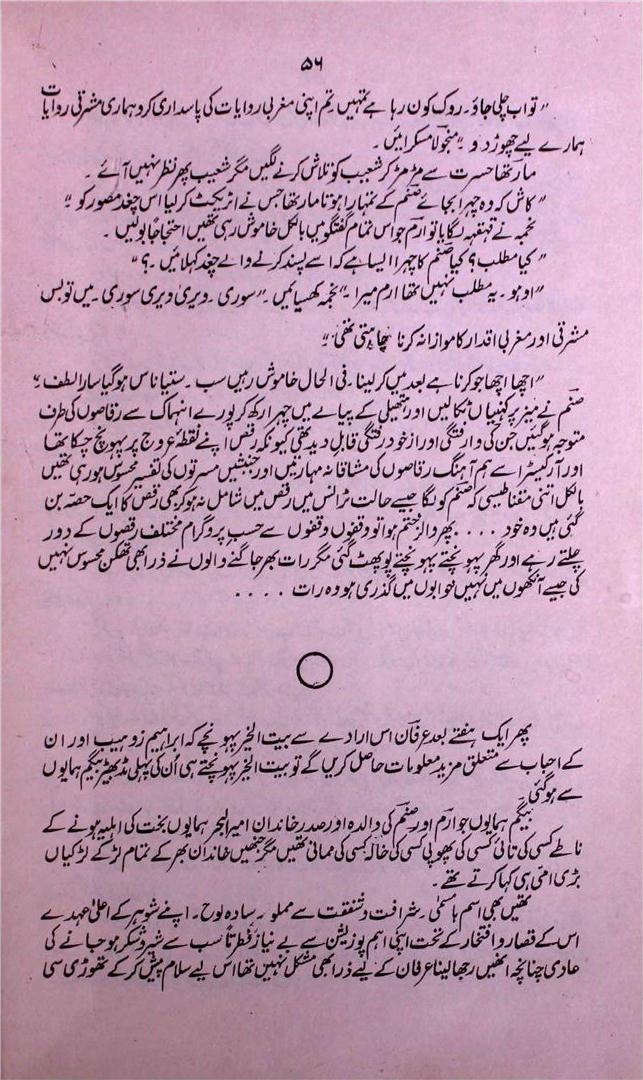 ۵۶
"تو اب چلی جاؤ۔ روک کون رہا ہے تمہیں۔ تم اپنی مغربی روایات کی پاسداری کرو ہماری مشرقی روایات
ہمارے لیے چھوڑ دو" منجولا مسکرائیں۔
مارتھا حسرت سے مڑ مڑ کر شعیب کو تلاش کرنے لگیں مگر شعیب پھر نظر نہیں آئے۔
"کاش کہ وہ چہرا بجائے صنم کے تمہارا ہوتا مارتھا جس نے اٹریکٹ کر لیا اس چغد مصور کو"
نجمہ نے قہقہہ لگایا تو ارم جو اس تمام گفتگو میں بالکل خاموش رہی تھیں احتجاجاً بولیں۔
"کیا مطلب؟ کیا صنم کا چہرا ایسا ہے کہ اسے پسند کرنے والے چغد کہلائیں۔؟"
"اوہو۔ یہ مطلب نہیں تھا ارم میرا۔" نجمہ کھسیائیں۔ "سوری۔ ویری ویری سوری۔ میں تو بس
مشرقی اور مغربی اقدار کا موازنہ کرنا چاہتی تھی"
"اچھا اچھا جو کرنا ہے بعد میں کر لینا۔ فی الحال خاموش رہیں سب۔ ستیاناس ہو گیا سارا لطف"
صنم نے میز پر کہنیاں ٹکا لیں اور ہتھیلی کے پیالے میں چہرا رکھ کر پورے انہماک سے رقاصوں کی طرف
متوجہ ہو گئیں جن کی وارفتگی اور از خود رفتگی قابل دید تھی کیونکہ رقص اپنے نقطۂ عروج پر پہونچ چکا تھا
اور آرکیسٹرا سے ہم آہنگ رقاصوں کی مشاقانہ مہارتیں اور جنبشیں مسرتوں کی تفسیر محسوس ہو رہی تھیں
بالکل اتنی مقناطیسی کہ صنم کو لگا جیسے حالت ٹرانس میں رقص میں شامل نہ ہو کر بھی رقص کا ایک حصہ بن
گئی ہیں وہ خود .... پھر والز ختم ہوا تو وقفوں وقفوں سے حسب پروگرام مختلف رقصوں کے دور
چلتے رہے اور گھر پہونچتے پہونچتے پو پھٹ گئی مگر رات بھر جاگنے والوں نے ذرا بھی تھکن محسوس نہیں
کی جیسے آنکھوں میں نہیں خوابوں میں گذری ہو وہ رات ....
پھر ایک ہفتے بعد عرفان اس ارادے سے بیت الخیر پہونچے کہ ابراہیم زوہیب اور ان
کے احباب سے متعلق مزید معلومات حاصل کریں گے تو بیت الخیر پہونچتے ہی اُن کی پہلی مڈبھیڑ بیگم ہمایوں
سے ہو گئی۔
بیگم ہمایوں جو ارم اور صنم کی والدہ اور صدر خاندان امیر البحر ہمایوں بخت کی اہلیہ ہونے کے
ناطے کسی کی تائی کسی کی پھوپی کسی کی خالہ کسی کی ممانی تھیں مگر جنھیں خاندان بھر کے تمام لڑکے لڑکیاں
بڑی امی ہی کہا کرتے تھے۔
تھیں بھی اسم با مسمیٰ۔ شرافت و شفقت سے مملو۔ سادہ لوح۔ اپنے شوہر کے اعلیٰ عہدے
اس کے وقار و افتخار کے تحت اپنی اہم پوزیشن سے بے نیاز فطرتاً سب سے شیر و شکر ہو جانے کی
عادی چنانچہ انھیں رجھا لینا عرفان کے لیے ذرا بھی مشکل نہیں تھا اس لیے سلام پیش کر کے تھوڑی سی